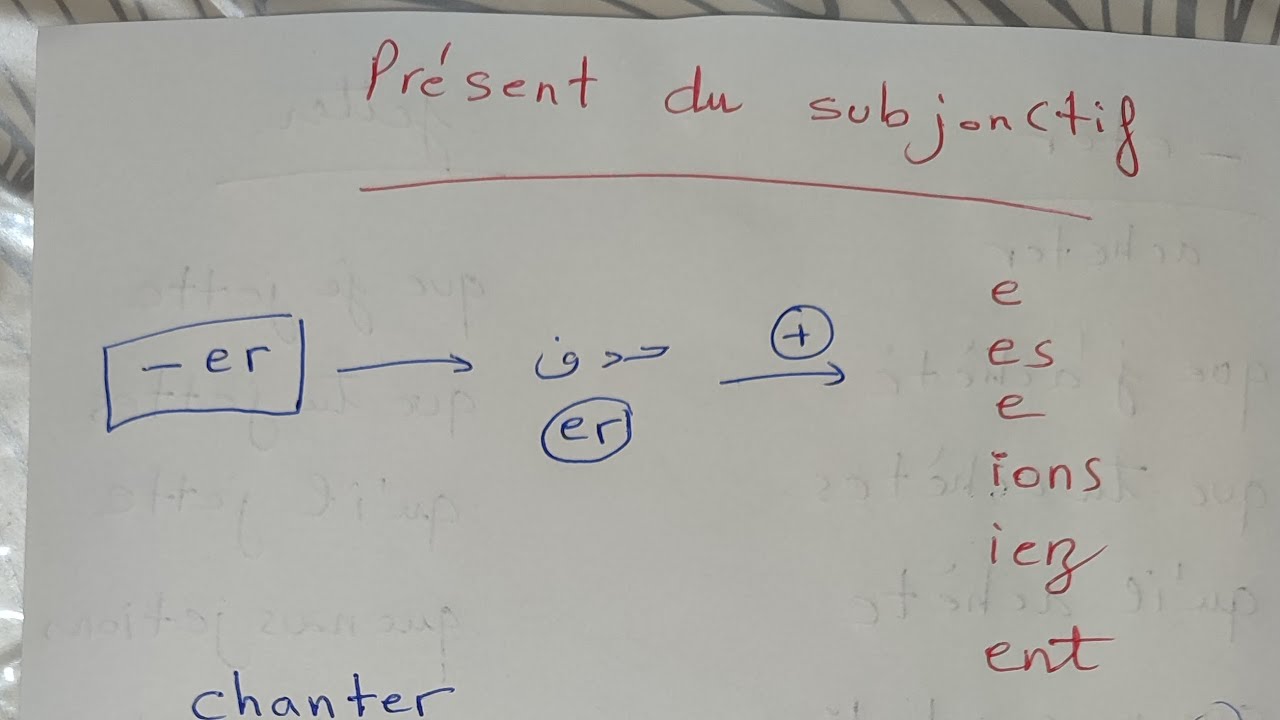 Présent du subjonctif
- er → حدف er + → e
es
e
ions
iez
ent
chanter